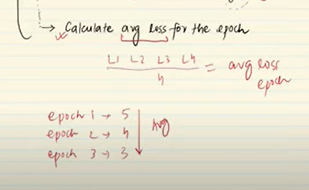 Calculate avg loss for the epoch
L1 L2 L3 L4
4
= avg loss
epoch
epoch 1 → 5
epoch 2 → 4
epoch 3 → 3
Avg